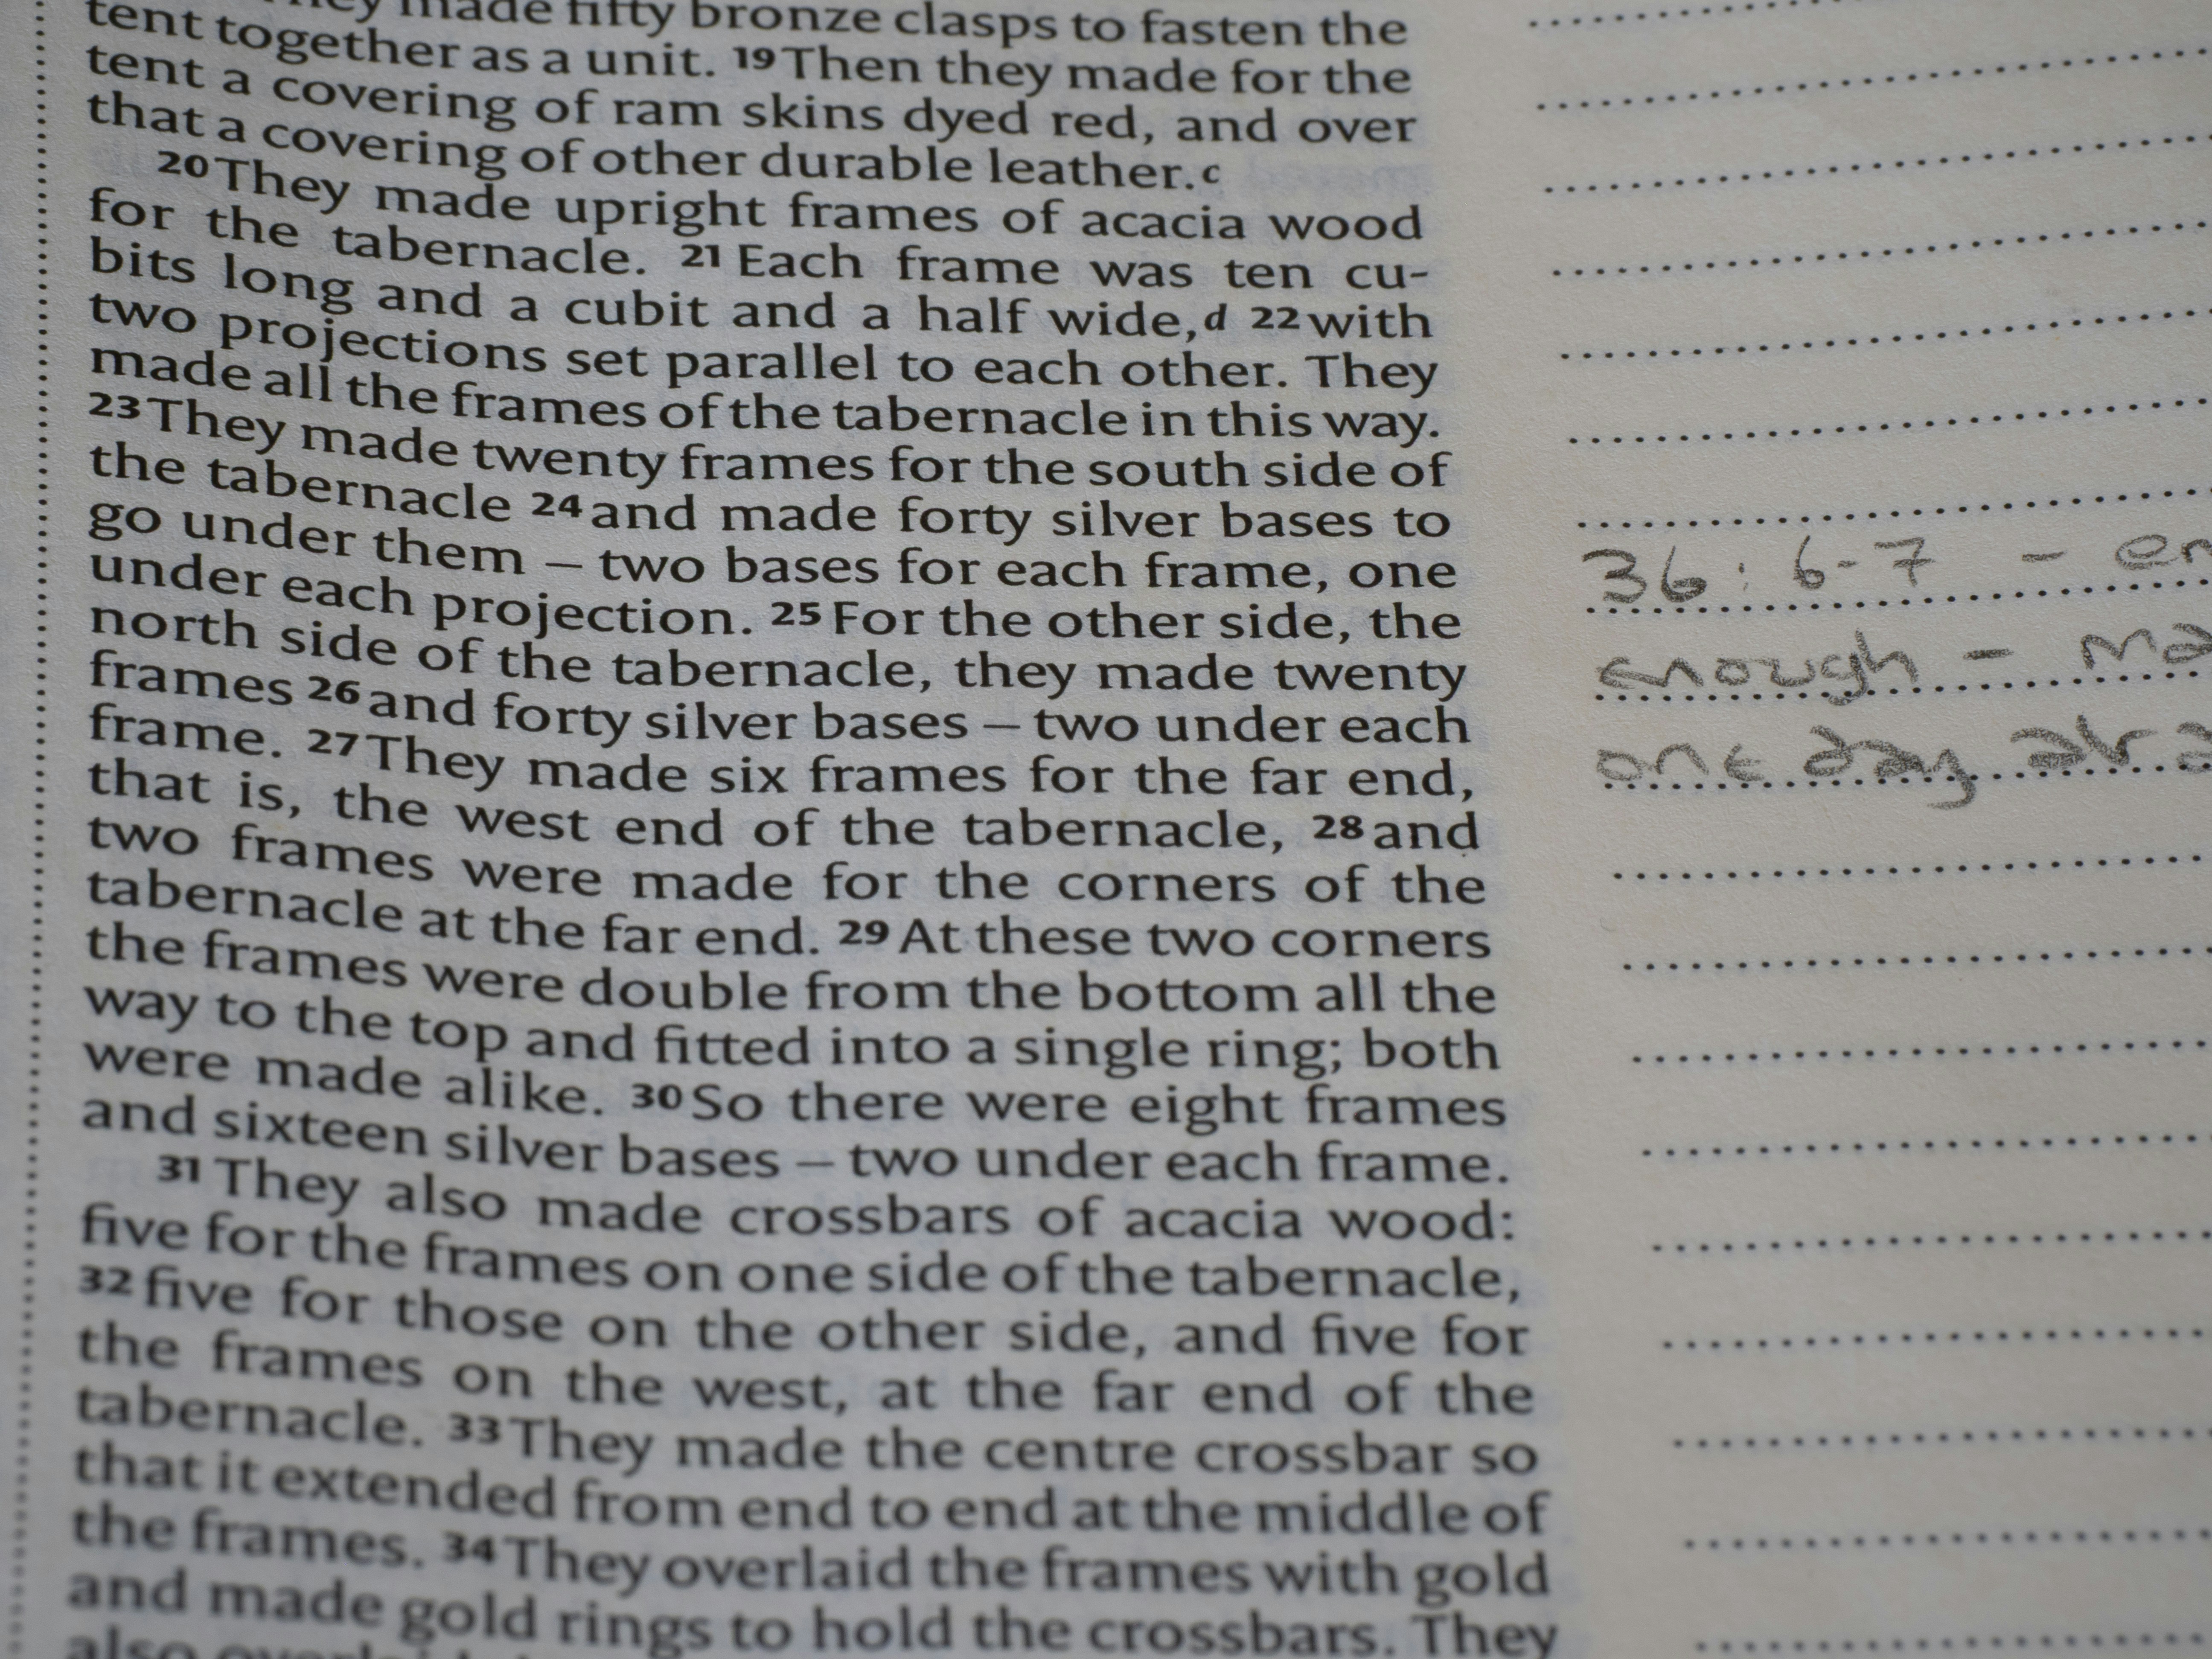 made fifty bronze clasps to fasten the
tent together as a unit. 19 Then they made for the
tent a covering of ram skins dyed red, and over
that a covering of other durable leather.c
20 They made upright frames of acacia wood
for the tabernacle. 21 Each frame was ten cu-
bits long and a cubit and a half wide,d 22 with
two projections set parallel to each other. They
made all the frames of the tabernacle in this way.
23 They made twenty frames for the south side of
the tabernacle 24 and made forty silver bases to
go under them – two bases for each frame, one
under each projection. 25 For the other side, the
north side of the tabernacle, they made twenty
frames 26 and forty silver bases – two under each
frame. 27 They made six frames for the far end,
that is, the west end of the tabernacle, 28 and
two frames were made for the corners of the
tabernacle at the far end. 29 At these two corners
the frames were double from the bottom all the
way to the top and fitted into a single ring; both
were made alike. 30 So there were eight frames
and sixteen silver bases – two under each frame.
31 They also made crossbars of acacia wood:
five for the frames on one side of the tabernacle,
32 five for those on the other side, and five for
the frames on the west, at the far end of the
tabernacle. 33 They made the centre crossbar so
that it extended from end to end at the middle of
the frames. 34 They overlaid the frames with gold
and made gold rings to hold the crossbars. They
also
36:6-7 –
enough –
one day